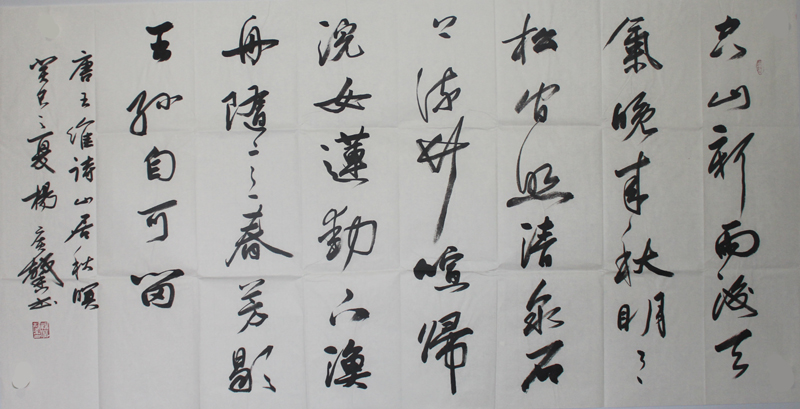 空山新雨後天
氣晚来秋明々
松間照清泉石
上流竹喧歸
浣女蓮動下漁
舟隨意春芳歇
王孫自可留
唐王維詩山居秋暝
癸巳之夏楊书